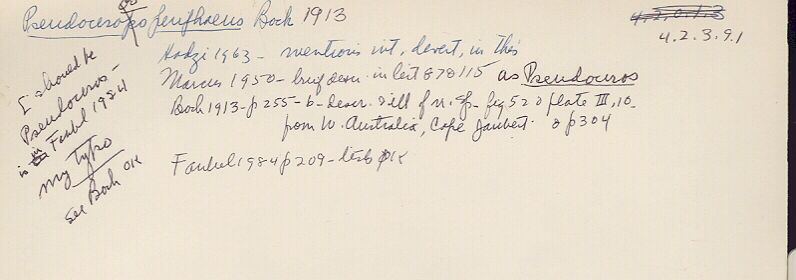 Pseudoceros periphaeus Bock 1913
4.2.0.1.3
4.2.3.9.1
Hadzi 1963 - mentions int. devert. in this
Marcus 1950 - brief descr. in list 878115 as Pseudoceros
Bock 1913 - p 255-6 - descr. & ill of n. sp. fig 52 & plate III, 10.
from W. Australia, Cape Jaubert. & p 304
Faubel 1984 p 209 - lists OK
I should be
Pseudoceros -
is in Faubel 1984
my typo
see Bock OK